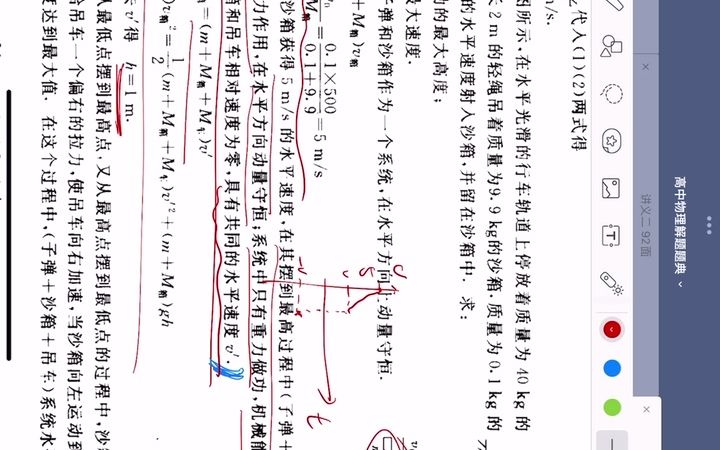 高中物理解题题典
讲义二 92面
代入(1)(2)两式得
m/s.
图所示,在水平光滑的行车轨道上停放着质量为 40 kg 的
2 m 的轻绳吊着质量为 9.9 kg 的沙箱.质量为 0.1 kg 的
的水平速度射入沙箱,并留在沙箱中. 求:
的最大高度;
最大速度.
子弹和沙箱作为一个系统,在水平方向上动量守恒.
+M箱)v箱
0.1×500
0.1+9.9 =5 m/s
沙箱获得 5 m/s 的水平速度,在其摆到最高过程中(子弹+
力作用,在水平方向动量守恒;系统中只有重力做功,机械能
箱和吊车相对速度为零,具有共同的水平速度 v′.
=(m+M箱+M车)v′
)v箱²=1/2(m+M箱+M车)v′²+(m+M箱)gh
v′得 h=1 m.
从最低点摆到最高点,又从最高点摆到最低点的过程中,沙
给吊车一个偏右的拉力,使吊车向右加速,当沙箱向左运动到
度达到最大值. 在这个过程中,(子弹+沙箱+吊车)系统水
t